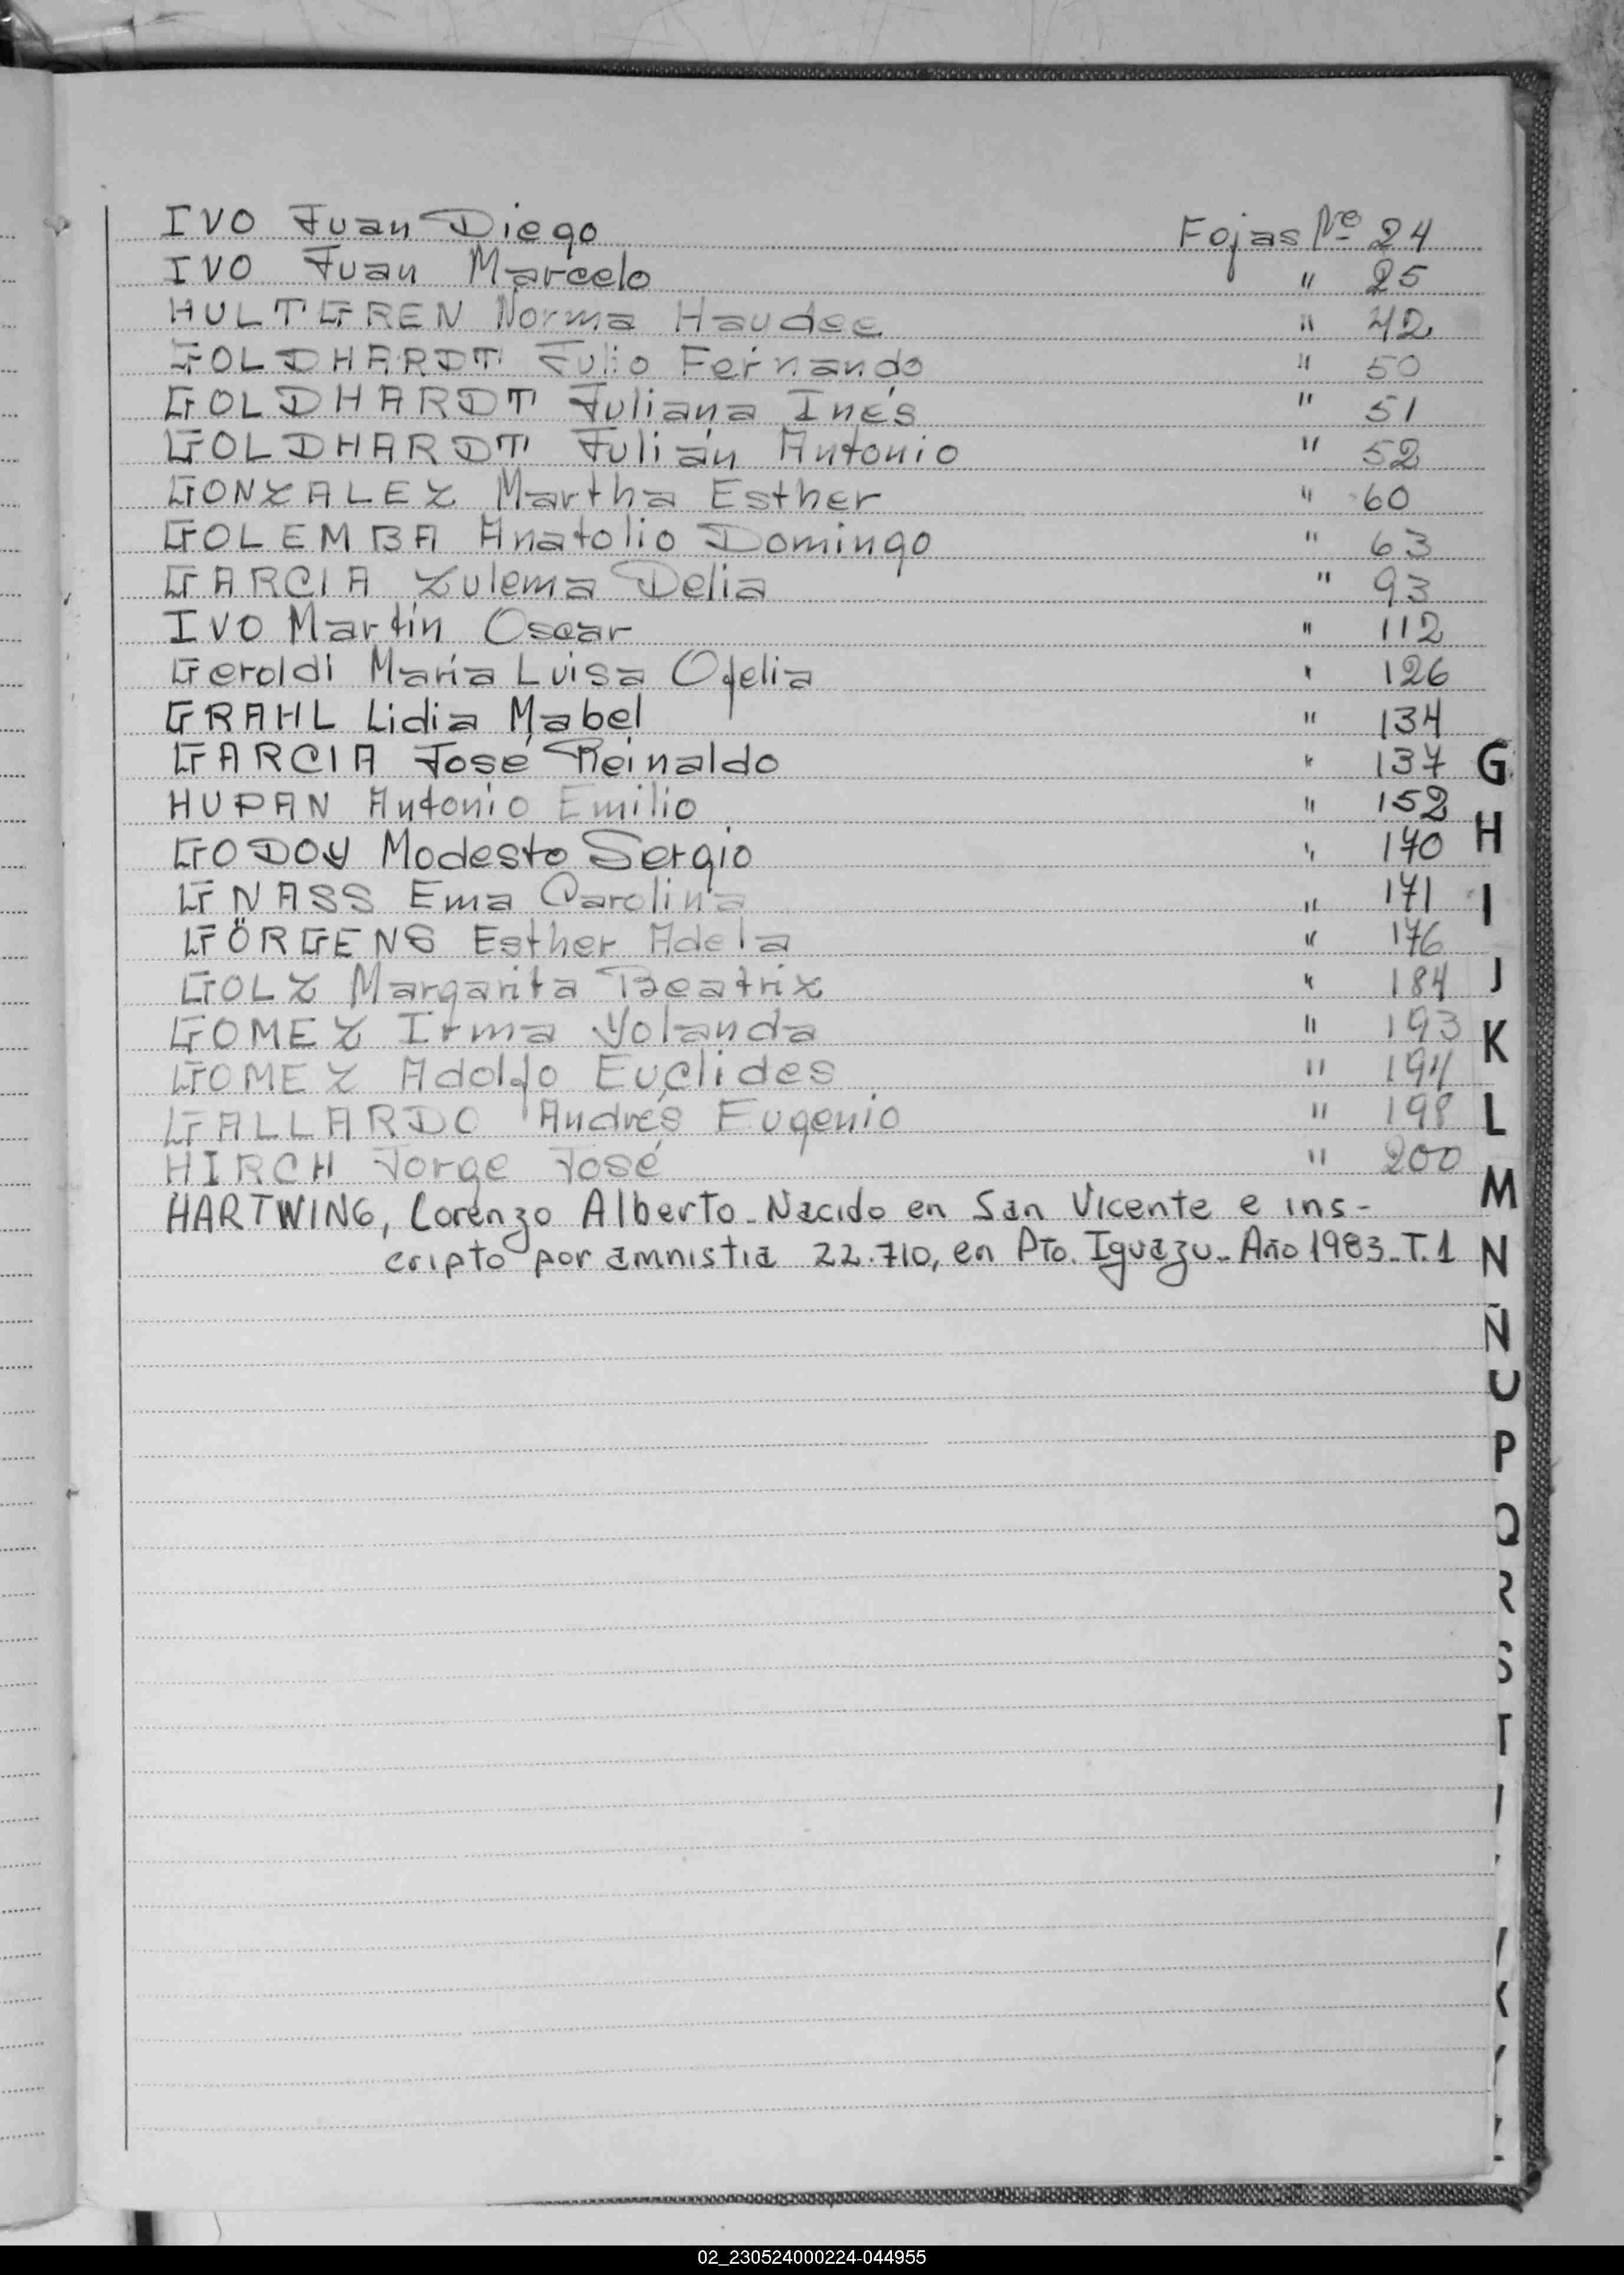 IVO Juan Diego Fojas Nº 24
IVO Juan Marcelo " 25
HULTGREN Norma Haudee " 42
GOLDHARDT Julio Fernando " 50
GOLDHARDT Juliana Inés " 51
GOLDHARDT Julián Antonio " 52
GONZALEZ Martha Esther " 60
GOLEMBA Anatolio Domingo " 63
GARCIA Zulema Delia " 93
IVO Martín Oscar " 112
Geroldi María Luisa Ofelia " 126
GRAHL Lidia Mabel " 134
GARCIA José Reinaldo " 137
HUPAN Antonio Emilio " 152
GODOY Modesto Sergio " 170
GNASS Ema Carolina " 171
GÖRGENS Esther Adela " 176
GOLZ Margarita Beatrix " 184
GOMEZ Irma Yolanda " 193
GOMEZ Adolfo Euclides " 194
GALLARDO Andrés Eugenio " 198
HIRCH Jorge José " 200
HARTWING, Lorenzo Alberto - Nacido en San Vicente e ins-
cripto por amnistia 22.710, en Pto. Iguazu - Año 1983 - T. 1
G
H
I
J
K
L
M
N
Ñ
U
P
Q
R
S
T
02_230524000224-044955